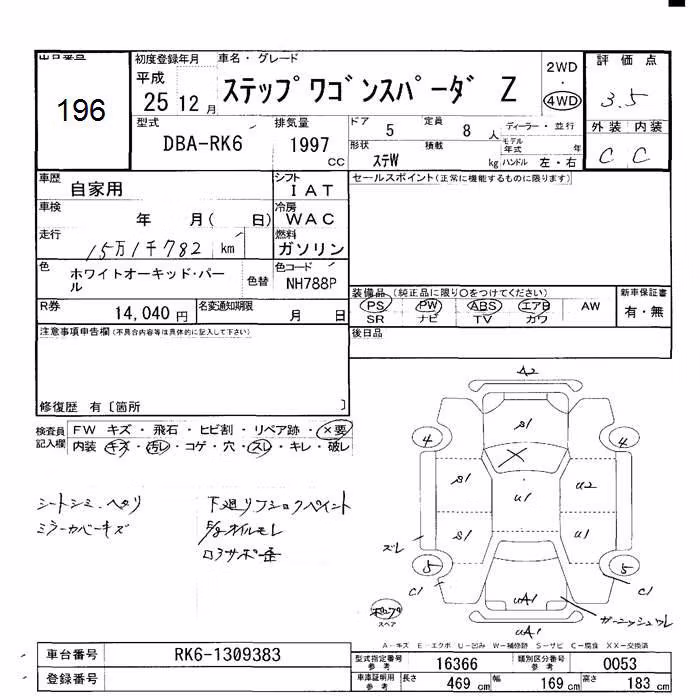 出品番号
196
初度登録年月 車名・グレード
平成 25 12 月 ステップワゴンスパーダ Z
2WD ・ 4WD
評 価 点
3.5
外 装 内 装
C C
型式 DBA-RK6
排気量 1997 CC
ドア 5 定員 8 人 ディーラー・並行
形状 ステW 積載 kg モデル年式 年 ハンドル 左・右
車歴 自家用
シフト I A T
セールスポイント(正常に機能するものに限ります)
車検 年 月( 日)
冷房 W A C
走行 15万1千782 km
燃料 ガソリン
色 ホワイトオーキッド・パール 色替
色コード NH788P
装備品 (純正品に限り〇をつけてください)
PS PW ABS エアB AW
SR ナビ TV カワ
新車保証書
有・無
R券 14,040 円 名変通知期限 月 日
後日品
注意事項申告欄(不具合内容等は具体的に記入して下さい)
修復歴 有 〔箇所 〕
検査員記入欄 FW キズ・飛石・ヒビ割・リペア跡・×要
内装 キズ・汚レ・コゲ・穴・スレ・キレ・破レ
シートシミ・ヘタリ
ミラーカバーキズ
下廻リフショクペイント
オイルモレ
コアサポ歪
A2
S1
4 4
S1 U1 U2
S1 U1
ズレ
5 5
C1 C1
UA1
ガーニッシュワレ
UA1
スペア
A-キズ E-エクボ U-凹み W-補修跡 S-サビ C-腐食 XX-交換済
車台番号 RK6-1309383
登録番号
型式指定番号 参考 16366 類別区分番号 参考 0053
車庫証明用 参考 長さ 469 cm 幅 169 cm 高さ 183 cm